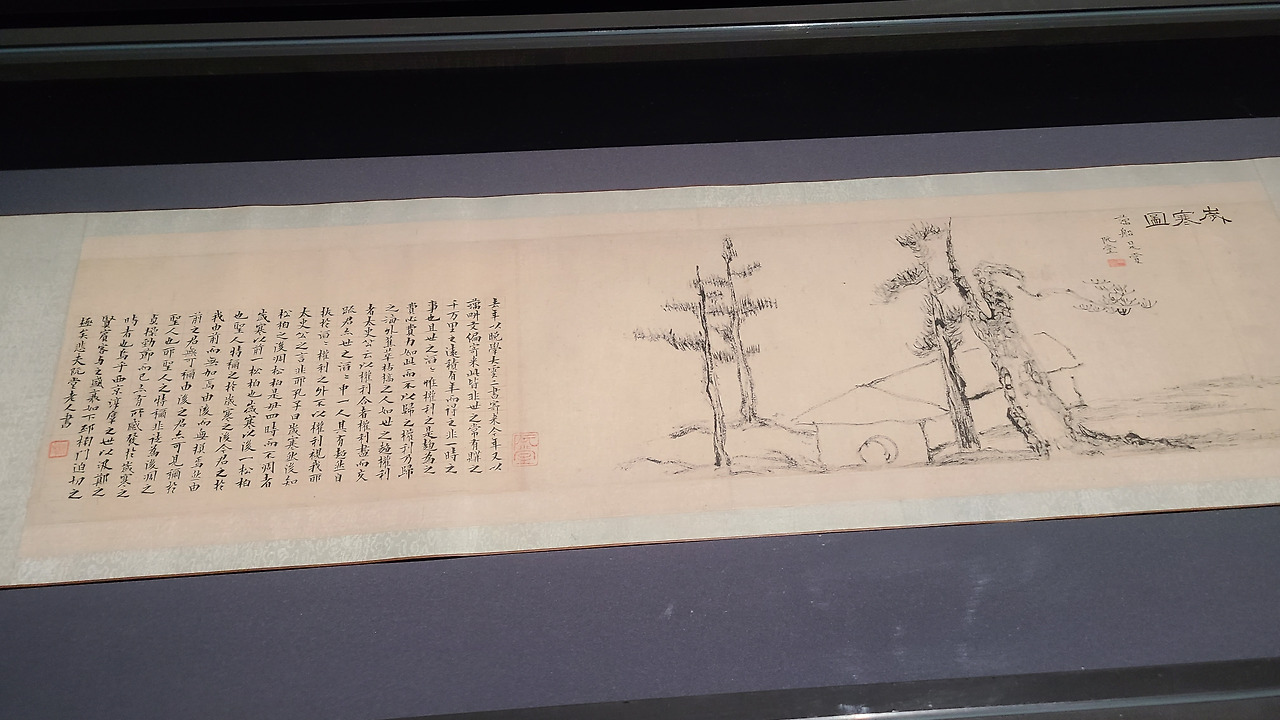 歲寒圖
藕船是賞
阮堂
去年以晚學大雲二書寄來今年又以
藕畊文編寄來此皆非世之常有購之
千万里之遠積有年而得之非一時之
事也且世之滔〻惟權利之是趨爲之
費心費力如此而不以歸之權利乃歸
之海外蕉萃枯槁之人如世之趨權利
者太史公云以權利合者權利盡而交
踈君亦世之滔〻中一人其有超然自
拔於滔〻權利之外不以權利視我耶
太史公之言非耶孔子曰歲寒然後知
松栢之後凋松栢是毋四時而不凋者
歲寒以前一松栢也歲寒以後一松栢
也聖人特稱之於歲寒之後今君之於
我由前而無加焉由後而無損焉然由
前之君無可稱由後之君亦可見稱於
聖人也耶聖人之特稱非徒爲後凋之
貞操勁節而已亦有所感發於歲寒之
時者也烏乎西京淳厚之世以汲鄭之
賢賓客與之盛衰如下邳榜門迫切之
極矣悲夫阮堂老人書
阮堂